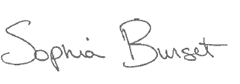 Sophia Burset